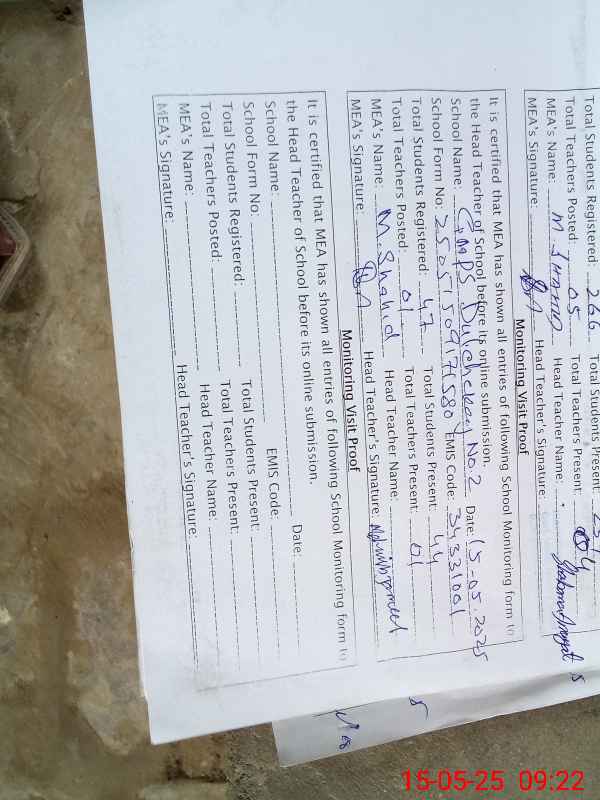 Total Students Registered: 266 Total Students Present:
Total Teachers Posted: 05 Total Teachers Present: 04
MEA's Name: M Shahid Head Teacher Name:
MEA's Signature: Head Teacher's Signature:
Monitoring Visit Proof
It is certified that MEA has shown all entries of following School Monitoring form to
the Head Teacher of School before its online submission.
School Name: GMPS Dulchckay No.2 Date: 15.05.2025
School Form No: EMIS Code: 34331001
Total Students Registered: 47 Total Students Present: 44
Total Teachers Posted: 01 Total Teachers Present: 01
MEA's Name: M. Shahid Head Teacher Name:
MEA's Signature: Head Teacher's Signature:
Monitoring Visit Proof
It is certified that MEA has shown all entries of following School Monitoring form to
the Head Teacher of School before its online submission.
School Name: Date:
School Form No: EMIS Code:
Total Students Registered: Total Students Present:
Total Teachers Posted: Total Teachers Present:
MEA's Name: Head Teacher Name:
MEA's Signature: Head Teacher's Signature:
15-05-25 09:22